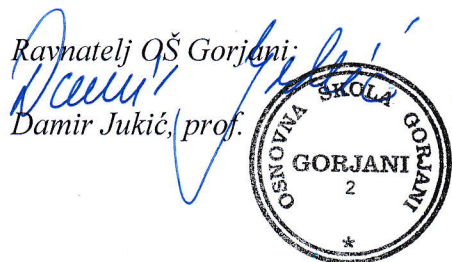 Ravnatelj OŠ Gorjani:
Damir Jukić
Damir Jukić, prof.
OSNOVNA ŠKOLA GORJANI
GORJANI
2